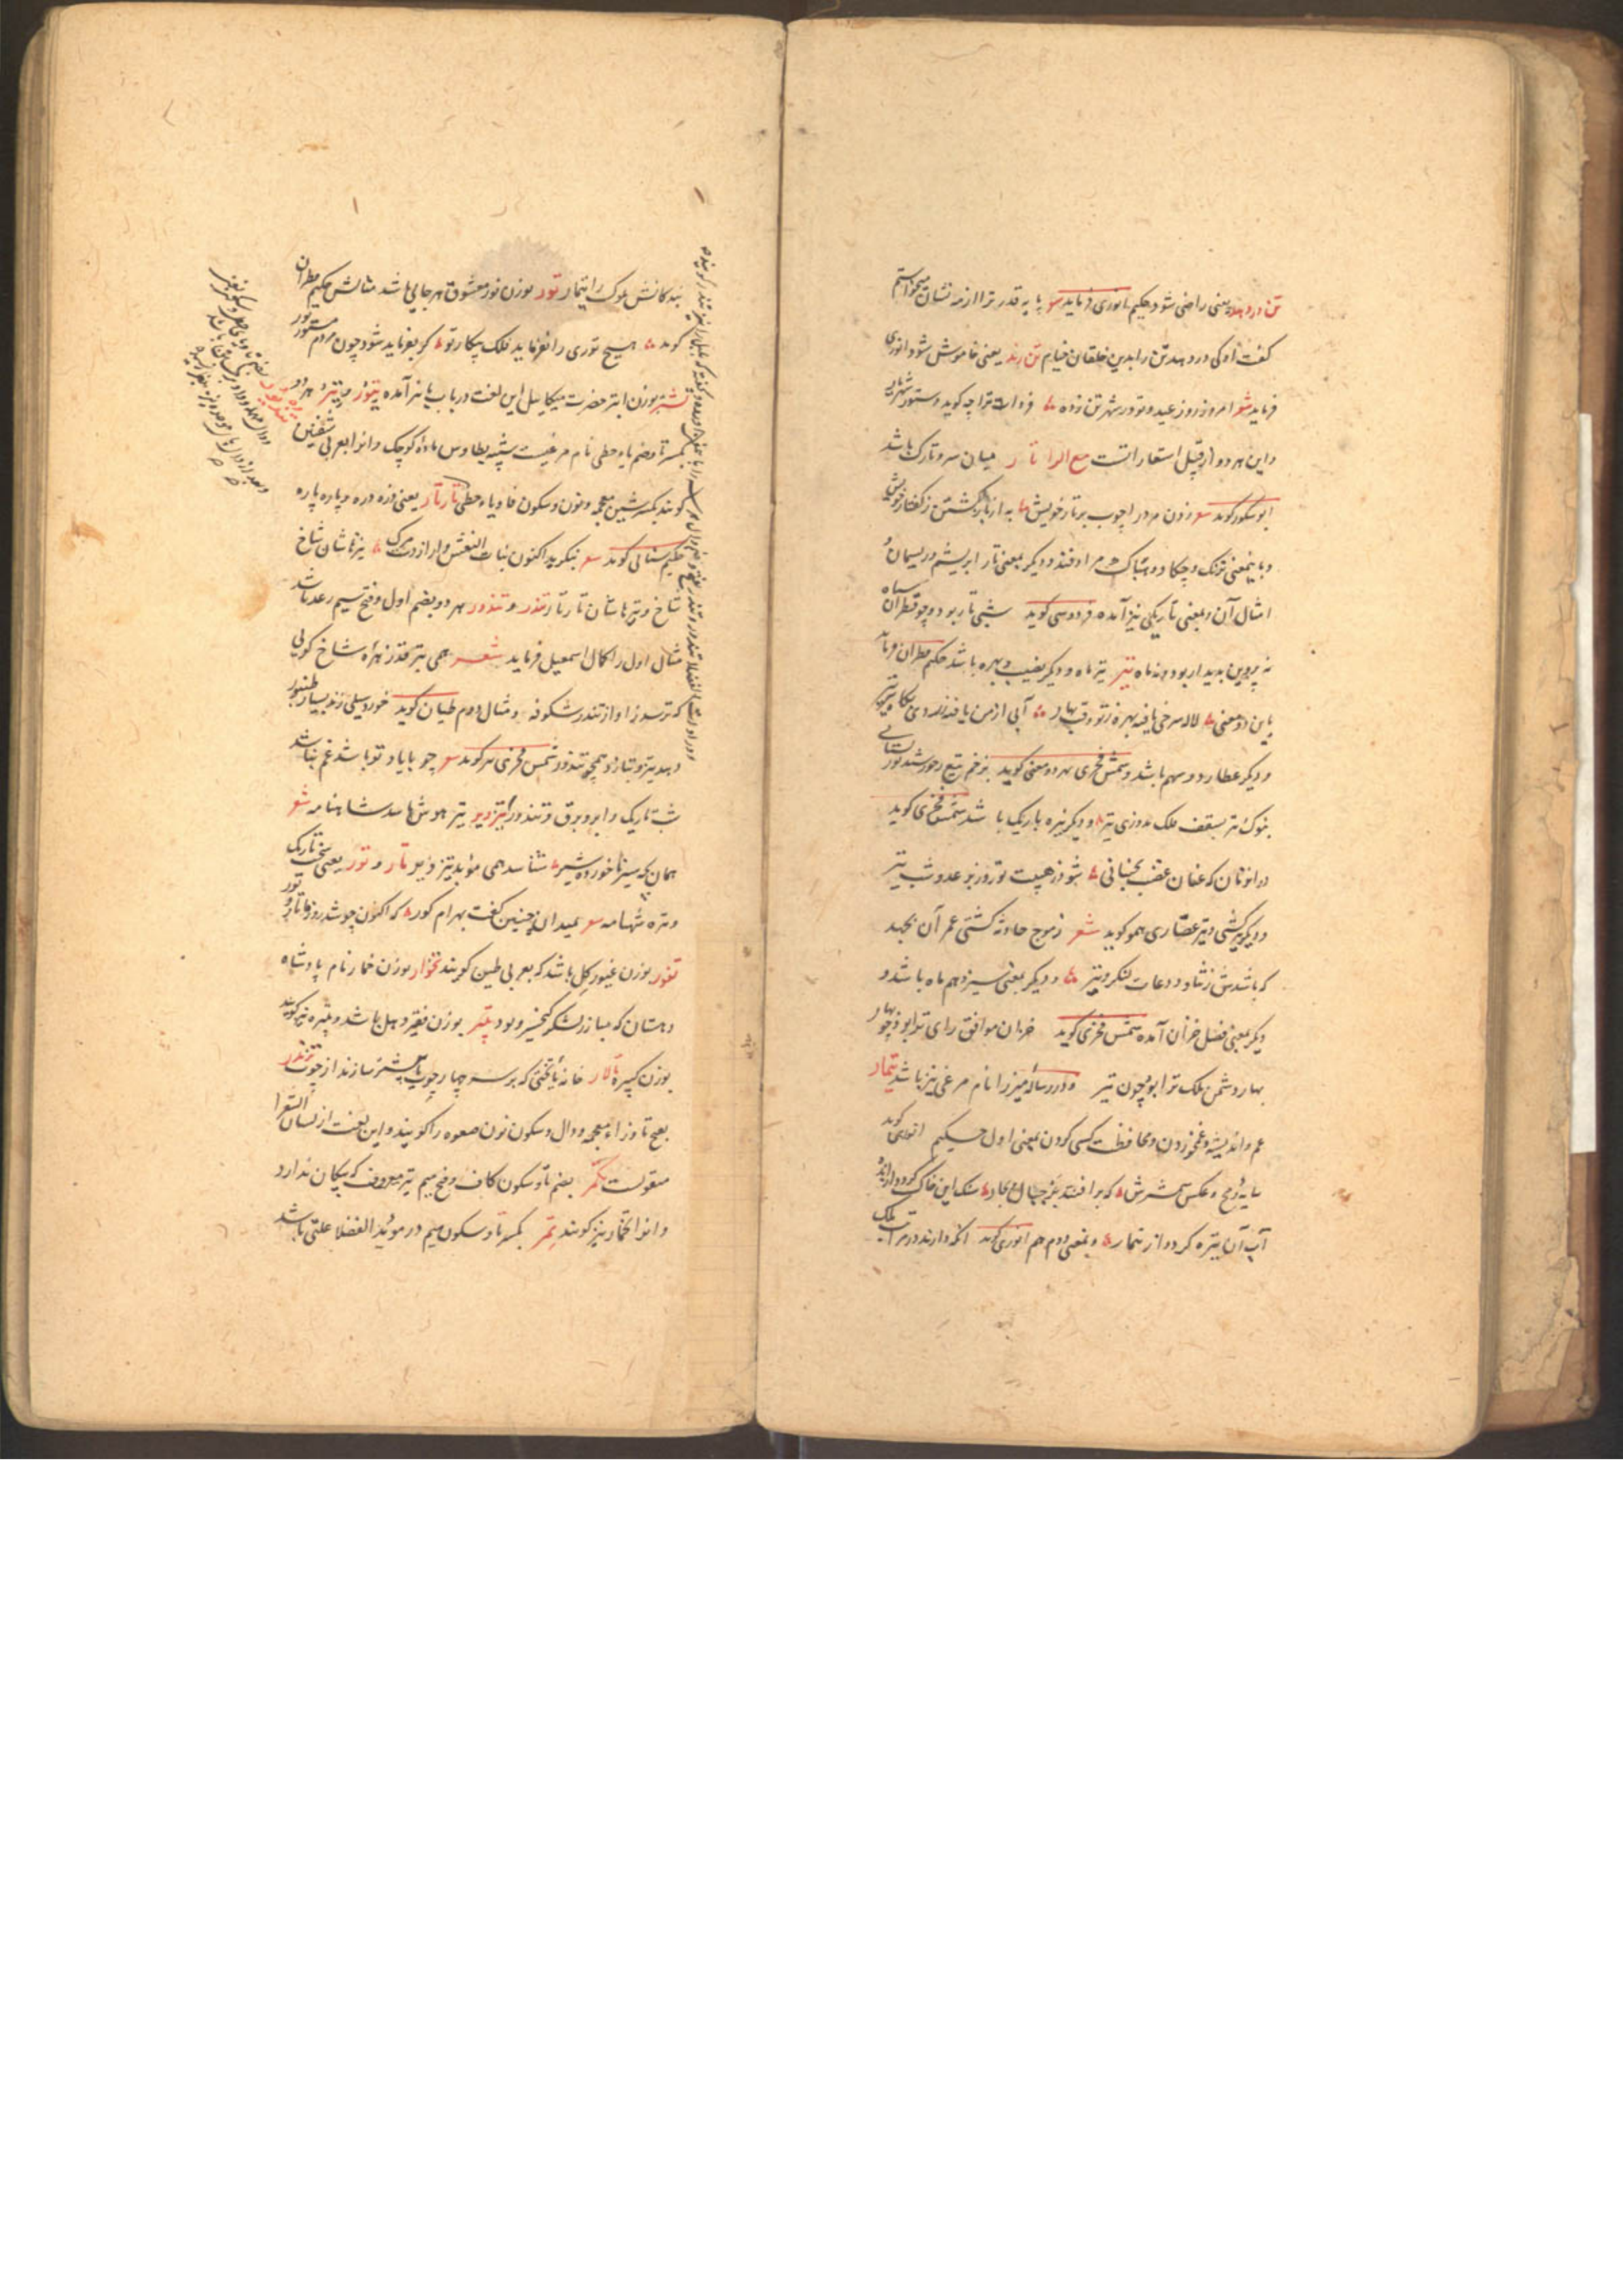 تن در دهد یعنی راضی شود حکیم انوری فرماید شعر پایه قدر ترا از مه نشان میخواستم
کفت او کی در دهد تن را بدین خلقان خیام تن زند یعنی خاموش شود انوری
فرماید شعر امروز روز عید و تو در شهر تن زده فردات ترا چه کوید دستور شهریار
و این هر دو از قبیل استعاراتست مع الرا تار میان سر و تارک باشد
ابو شکور کوید شعر زدن مرد را چوب بر تار خویش به از بازکشتن ز کفتار خویش
و باینمعنی ترنک و چکاد و هباک مرادفند و دیکر بمعنی تار ابریشم و ریسمان و
امثال آن و بمعنی تاریکی نیز آمده فردوسی کوید شبی تار بود و چو قطران سیاه
نه پروین پدیدار بود و نه ماه تیر تیر ماه و دیکر نصیب و بهره باشد حکیم قطران فرماید
باین دو معنی لاله سرخی یافته بهره ز تو وقت بهار آبی از من یافته زردی بکاه تیر تیر
و دیکر عطارد و سهم باشد و شمس فخری بهر دو معنی کوید بزخم تیغ ز خورشید نور بستانی
بنوک تیر بسقف فلک بدوزی تیر و دیکر تیره باریک باشد شمس فخری کوید
در انزمان که عنان عقب بجنبانی شود ز هیبت تو روز بر عدو شب تیر
و دیکر تیر کشتی و تیر عصاری همو کوید شعر ز موج حادثه کشتی عمر آن نجهد
که باشدش ز ثنا و دعات لنکر و تیر و دیکر بمعنی سیزدهم ماه باشد و
دیکر بمعنی فصل خزان آمده شمس فخری کوید خزان موافق رای ترا بود چو بهار
بهار دشمن ملک ترا بود چون تیر و در رساله میرزا نام مرغی نیز باشد تیمار
غم و اندیشه و غمخوردن و محافظت کسی کردن بمعنی اول حکیم انوری کوید
سایه رمح و عکس شمشیرش که بر افتند بر جبال و بحار سنک این خاک کردد از اندوه
آب آن تیره کردد از تیمار و بمعنی دوم هم انوری کوید آنکه دارند در مراتب ملک
بندکانش ملوک را تیمار تور بوزن نور معشوق هر جایی باشد مثالش حکیم قطران
کوید هیچ توری را نفرماید فلک پیکار تو کر بفرماید شود چون مردم مستور تور
تشتر بوزن ابتر حضرت میکاییل این لغت در باب با نیز آمده تیتور و تیتر هر دو
بکسر تا و ضم یاء حطی نام مرغیست شبیه بطاوس ماده کوچک و انرا بعربی شفنین
کویند بکسر شین معجمه و نون و سکون فا و یاء حطی تارتار یعنی ذره ذره و پاره پاره
حکیم سنائی کوید شعر بنکرید اکنون بنات النعش وار از دست مرک نیزهاشان شاخ
شاخ و تیرهاشان تارتار تندر و تندور هر دو بضم اول و فتح سیم رعد باشد
مثال اول را کمال اسمعیل فرماید شعر همی بترقد زهره شاخ کویی
که ترسد ز آواز تندر شکوفه و مثال دوم طیان کوید خورد سیلی زند بسیار طنبور
دهد تیز و بنازد همچو تندور شمس فخری هر کوید شعر چو با یاد تو باشد غم نباشد
شب تاریک و ابر و برق و تندور تیزویر تیز هوش باشد شاهنامه شعر
همان که سیر ناخورده شیر شناسد همی موبد تیزویر تار و تور یعنی سخت تاریک
و تیره شهنامه شعر بمیدان چنین کفت بهرام کور که اکنون چو شد روز ما تار و تور
تفور بوزن غیور کل باشد که بعربی طین کویند تخوار بوزن خمار نام پادشاه
دهستان که مبارز لشکر کیخسرو بود تبیر بوزن فقیر دهل باشد و تبیره نیز کویند
بوزن کبیره تالار خانه یا تختی که بر سر چهار چوب یا بیشتر سازند از چوب تزندر
بفتح تا و زاء معجمه و دال و سکون نون صعوه را کویند و این لغت از لسان الشعرا
منقولست تکمر بضم تا و سکون کاف و فتح میم تیر معروف که پیکان ندارد
و انرا تخمار نیز کویند تمر بکسر تا و سکون میم در موئد الفضلا علتی باشد